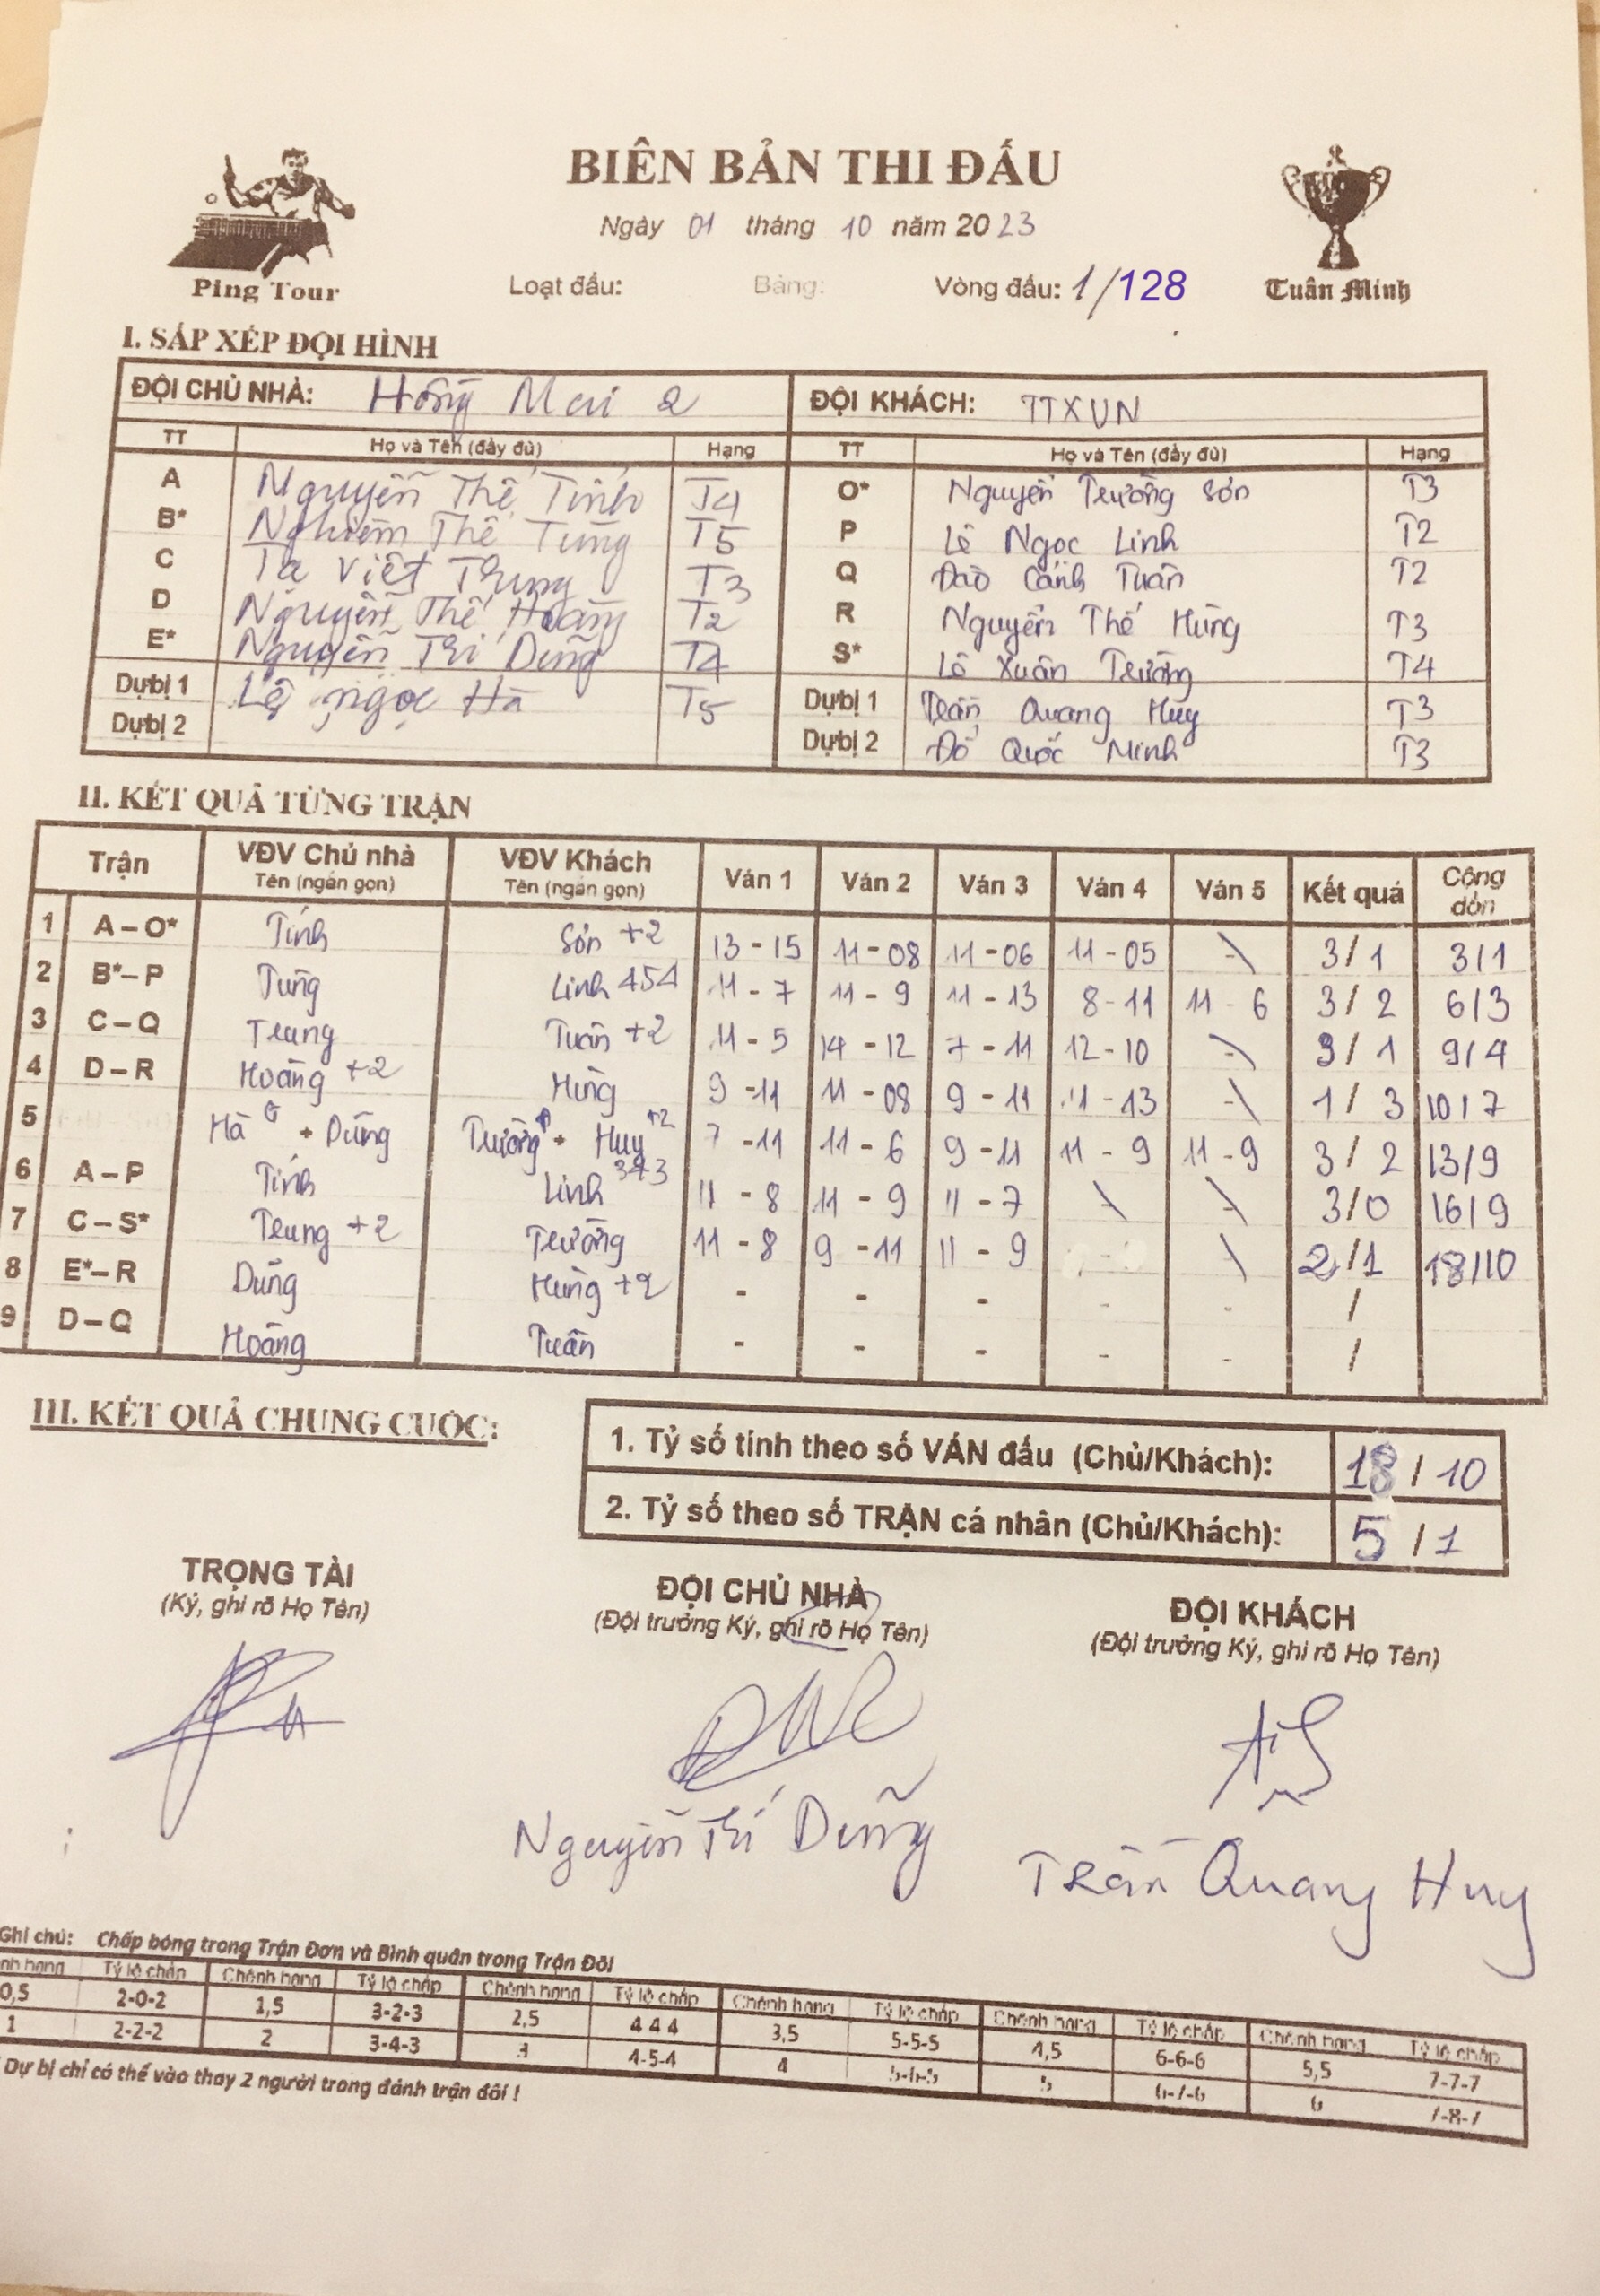 BIÊN BẢN THI ĐẤU
Ngày 01 tháng 10 năm 2023
Ping Tour
Loạt đấu: Bảng: Vòng đấu: 1/128
Tuấn Minh
I. SẮP XẾP ĐỘI HÌNH
ĐỘI CHỦ NHÀ: Hồng Mai 2 ĐỘI KHÁCH: TTXVN
TT Họ và Tên (đầy đủ) Hạng TT Họ và Tên (đầy đủ) Hạng
A Nguyễn Thế Tính T4 O* Nguyễn Trường Sơn T3
B* Nghiêm Thế Tùng T5 P Lê Ngọc Linh T2
C Tạ Viết Trung T3 Q Đào Cảnh Tuấn T2
D Nguyễn Thế Hoàng T2 R Nguyễn Thế Hùng T3
E* Nguyễn Trí Dũng T4 S* Lê Xuân Trường T4
Dự bị 1 Lê Ngọc Hà T5 Dự bị 1 Trần Quang Huy T3
Dự bị 2 Dự bị 2 Đỗ Quốc Minh T3
II. KẾT QUẢ TỪNG TRẬN
Trận VĐV Chủ nhà Tên (ngắn gọn) VĐV Khách Tên (ngắn gọn) Ván 1 Ván 2 Ván 3 Ván 4 Ván 5 Kết quả Cộng dồn
1 A – O* Tính Sơn +2 13 - 15 11 - 08 11 - 06 11 - 05 - 3/1 3/1
2 B* – P Tùng Linh 454 11 - 7 11 - 9 11 - 13 8 - 11 11 - 6 3/2 6/3
3 C – Q Trung Tuấn +2 11 - 5 14 - 12 7 - 11 12 - 10 - 3/1 9/4
4 D – R Hoàng +2 Hùng 9 - 11 11 - 08 9 - 11 11 - 13 - 1/3 10/7
5 Hà + Dũng Trường + Huy +2 7 - 11 11 - 6 9 - 11 11 - 9 11 - 9 3/2 13/9
6 A – P Tính Linh 343 11 - 8 11 - 9 11 - 7 \ \ 3/0 16/9
7 C – S* Trung +2 Trường 11 - 8 9 - 11 11 - 9 \ 2/1 18/10
8 E* – R Dũng Hùng +2 - - - - - /
9 D – Q Hoàng Tuấn - - - - - /
III. KẾT QUẢ CHUNG CUỘC:
1. Tỷ số tính theo số VÁN đấu (Chủ/Khách): 18 / 10
2. Tỷ số theo số TRẬN cá nhân (Chủ/Khách): 5 / 1
TRỌNG TÀI ĐỘI CHỦ NHÀ ĐỘI KHÁCH
(Ký, ghi rõ Họ Tên) (Đội trưởng Ký, ghi rõ Họ Tên) (Đội trưởng Ký, ghi rõ Họ Tên)
Nguyễn Trí Dũng Trần Quang Huy
Ghi chú: Chấp bóng trong Trận Đơn và Bình quân trong Trận Đôi
nh hạng Tỷ lệ chấp Chênh hạng Tỷ lệ chấp Chênh hạng Tỷ lệ chấp Chênh hạng Tỷ lệ chấp Chênh hạng Tỷ lệ chấp Chênh hạng Tỷ lệ chấp
0,5 2-0-2 1,5 3-2-3 2,5 4 4 4 3,5 5-5-5 4,5 6-6-6 5,5 7-7-7
1 2-2-2 2 3-4-3 3 4-5-4 4 5-6-5 5 6-7-6 6 7-8-7
Dự bị chỉ có thể vào thay 2 người trong đánh trận đôi !